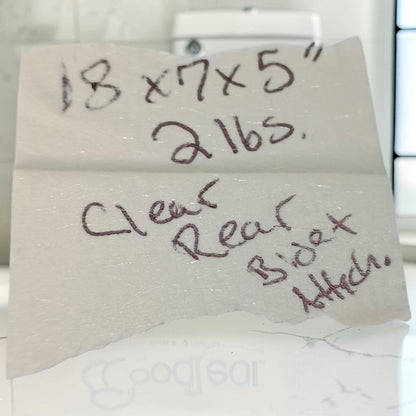 18 x 7 x 5"
2 lbs.
Clear
Rear
Bidet
Attach.